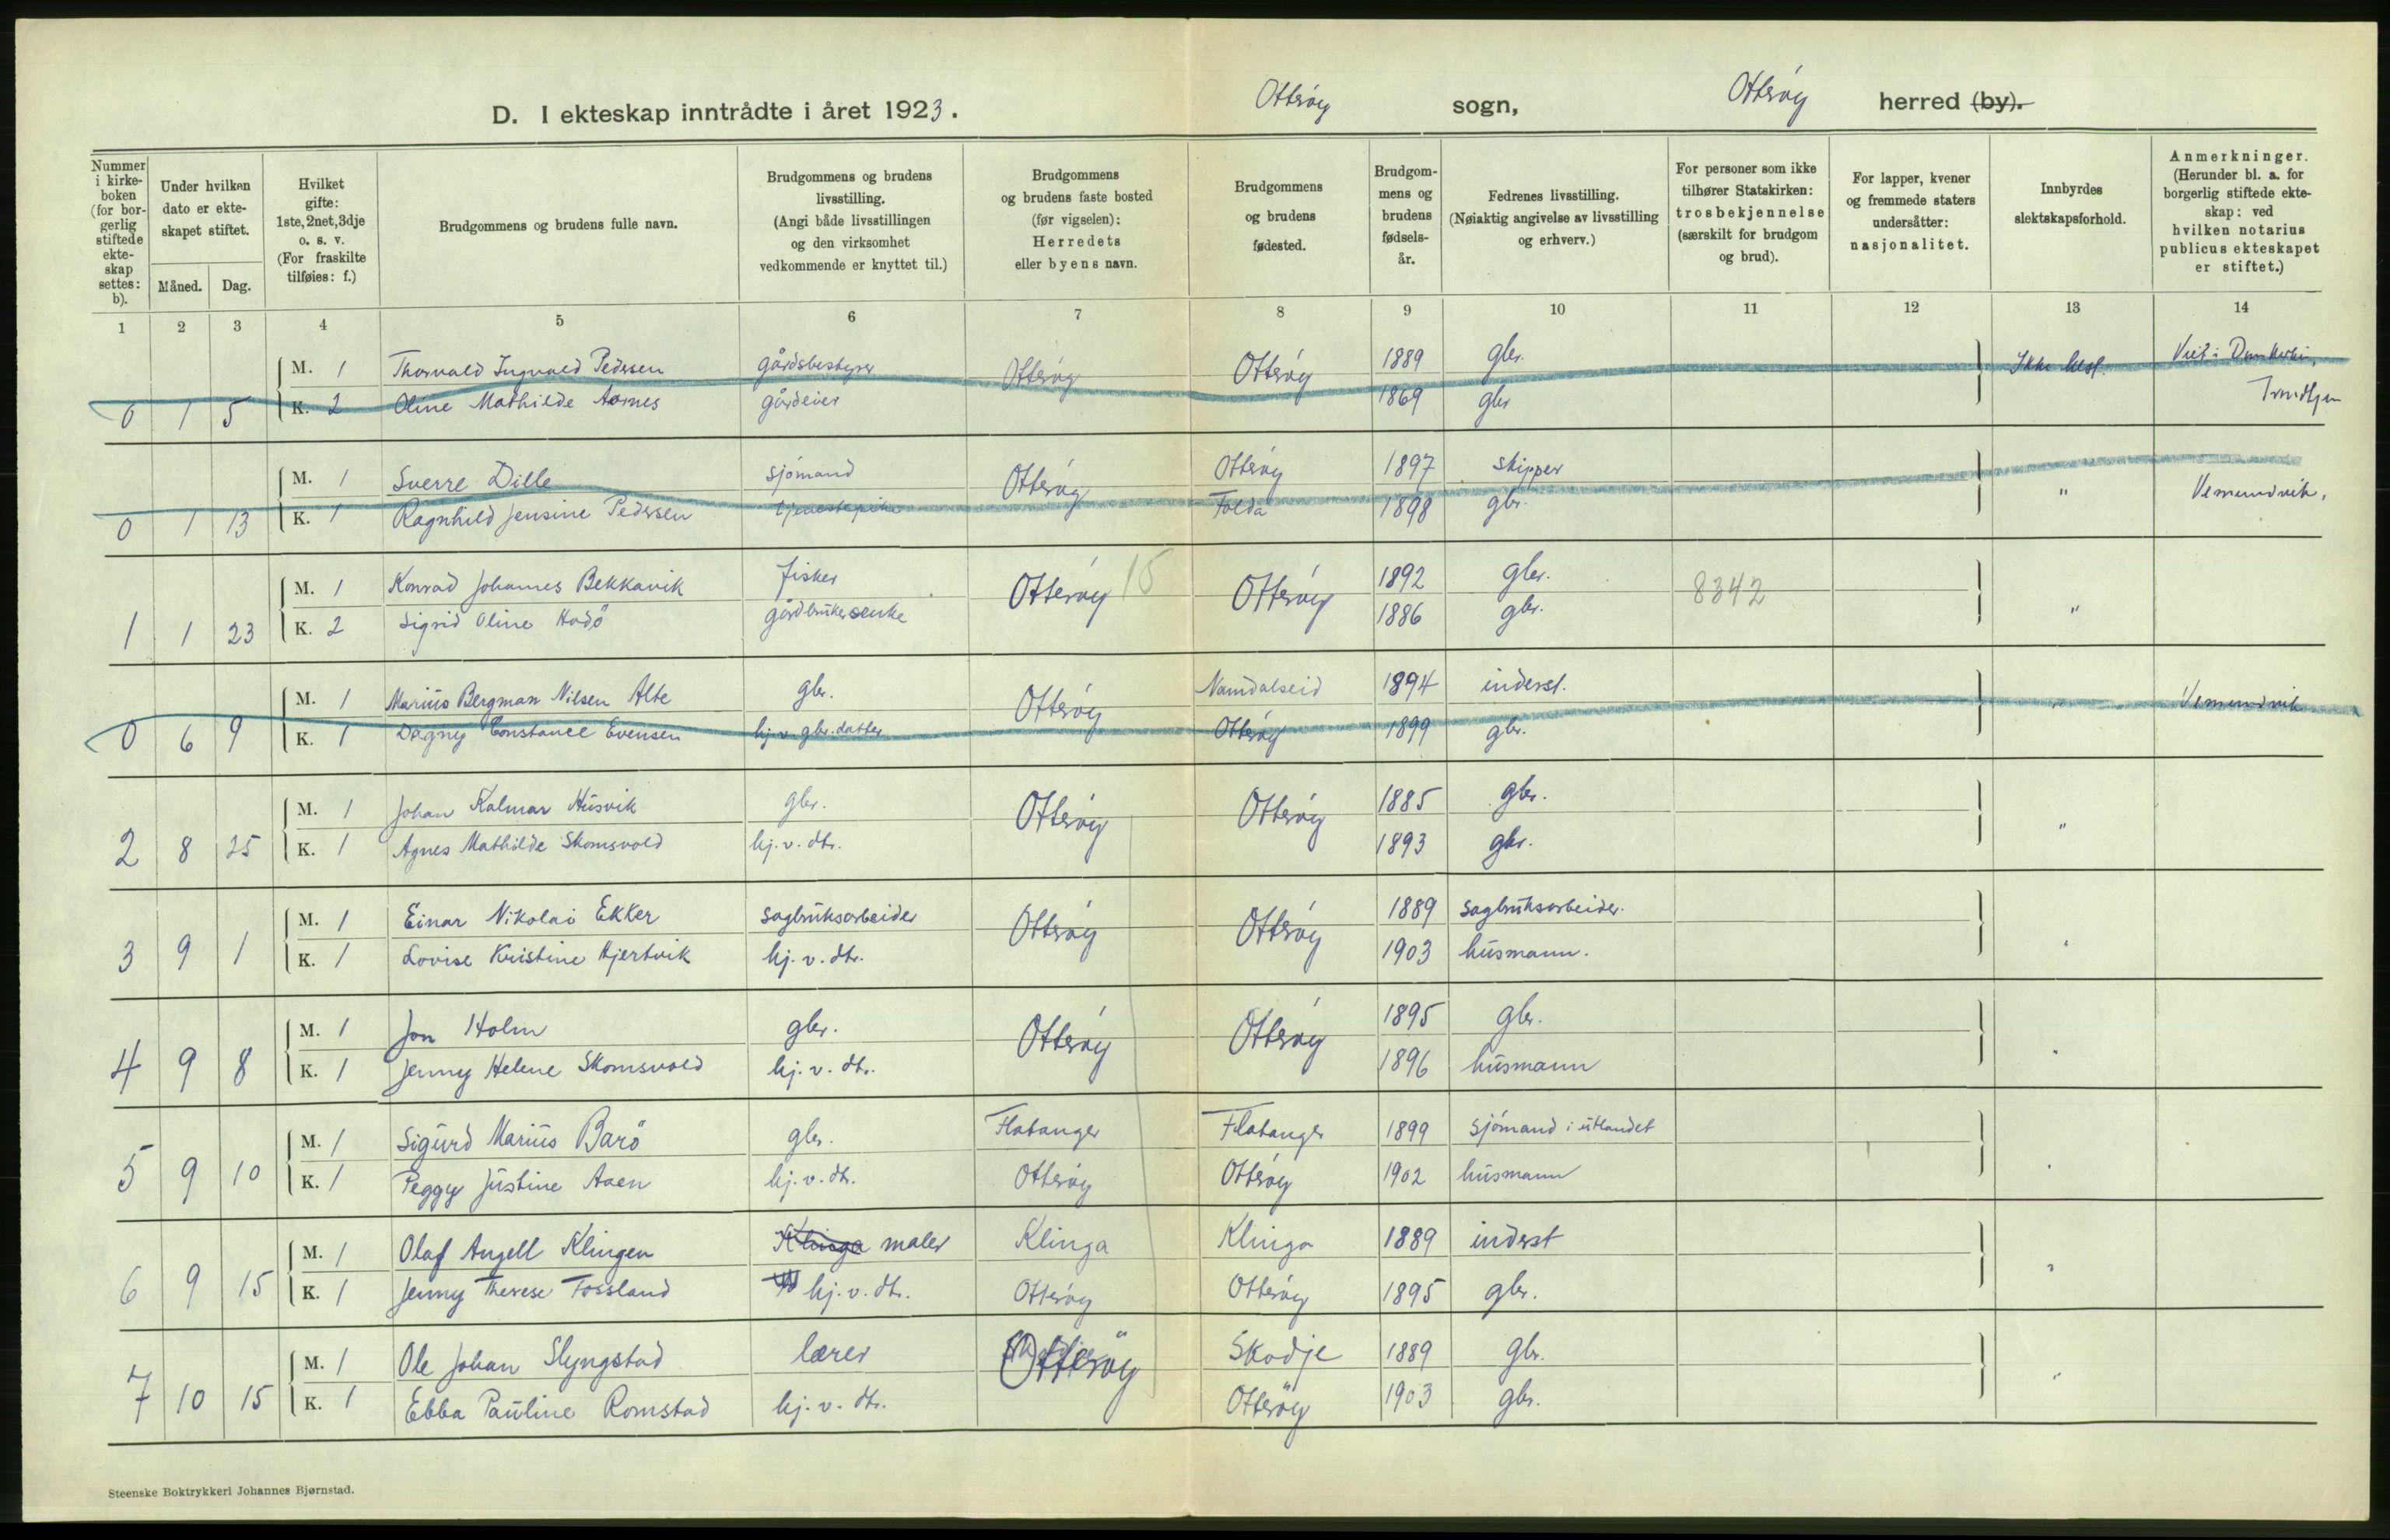 D. I ekteskap inntrådte i året 1923.
Otterøy sogn, Otterøy herred (by).
Nummer i kirkeboken (for borgerlig stiftede ekteskap settes: b).
Under hvilken dato er ekteskapet stiftet.
Måned. Dag.
Hvilket gifte: 1ste, 2net, 3dje o. s. v. (For fraskilte tilføies: f.)
Brudgommens og brudens fulle navn.
Brudgommens og brudens livsstilling. (Angi både livsstillingen og den virksomhet vedkommende er knyttet til.)
Brudgommens og brudens faste bosted (før vigselen): Herredets eller byens navn.
Brudgommens og brudens fødested.
Brudgommens og brudens fødselsår.
Fedrenes livsstilling. (Nøiaktig angivelse av livsstilling og erhverv.)
For personer som ikke tilhører Statskirken: trosbekjennelse (særskilt for brudgom og brud).
For lapper, kvener og fremmede staters undersåtter: nasjonalitet.
Innbyrdes slektskapsforhold.
Anmerkninger. (Herunder bl. a. for borgerlig stiftede ekteskap: ved hvilken notarius publicus ekteskapet er stiftet.)
1 2 3 4 5 6 7 8 9 10 11 12 13 14
M. 1 Thorvald Ingvald Pedersen gårdsbestyrer Otterøy Otterøy 1889 gbr. Ikke besl. Viet i Domkirken,
0 1 5 K. 2 Oline Mathilde Aarnes gårdeier 1869 gbr Trondhjem
M. 1 Sverre Dille sjømand Otterøy Otterøy 1897 skipper
0 1 13 K. 1 Ragnhild Jensine Pedersen tjenestepike Folda 1898 gbr. " Vemundvik,
M. 1 Konrad Johannes Bekkavik fisker Otterøy 15 Otterøy 1892 gbr. 8342
1 1 23 K. 2 Sigrid Oline Hodø gårdbrukerenke 1886 gbr. "
M. 1 Marius Bergman Nilsen Alte gbr. Otterøy Namdalseid 1894 inderst. Vemundvik
0 6 9 K. 1 Dagny Constance Evensen hj. v. gbr. datter Otterøy 1899 gbr. "
M. 1 Johan Kalmar Husvik gbr. Otterøy Otterøy 1885 gbr.
2 8 25 K. 1 Agnes Mathilde Skomsvold hj. v. dtr. 1893 gbr. "
M. 1 Einar Nikolai Ekker sagbruksarbeider Otterøy Otterøy 1889 sagbruksarbeider.
3 9 1 K. 1 Lovise Kristine Hjertvik hj. v. dtr. 1903 husmann. "
M. 1 Jon Holm gbr. Otterøy Otterøy 1895 gbr.
4 9 8 K. 1 Jenny Helene Skomsvold hj. v. dtr. 1896 husmann "
M. 1 Sigurd Marius Barø gbr. Flatanger Flatanger 1899 sjømand i utlandet
5 9 10 K. 1 Peggy Justine Aaen hj. v. dtr. Otterøy Otterøy 1902 husmann "
M. 1 Olaf Angell Klingen Klinga maler Klinga Klinga 1889 inderst
6 9 15 K. 1 Jenny Therese Fossland hj. v. dtr. Otterøy Otterøy 1895 gbr. "
M. 1 Ole Johan Slyngstad lærer Otterøy Skodje 1889 gbr.
7 10 15 K. 1 Ebba Pauline Romstad hj. v. dtr. Otterøy 1903 gbr. "
Steenske Boktrykkeri Johannes Bjørnstad.